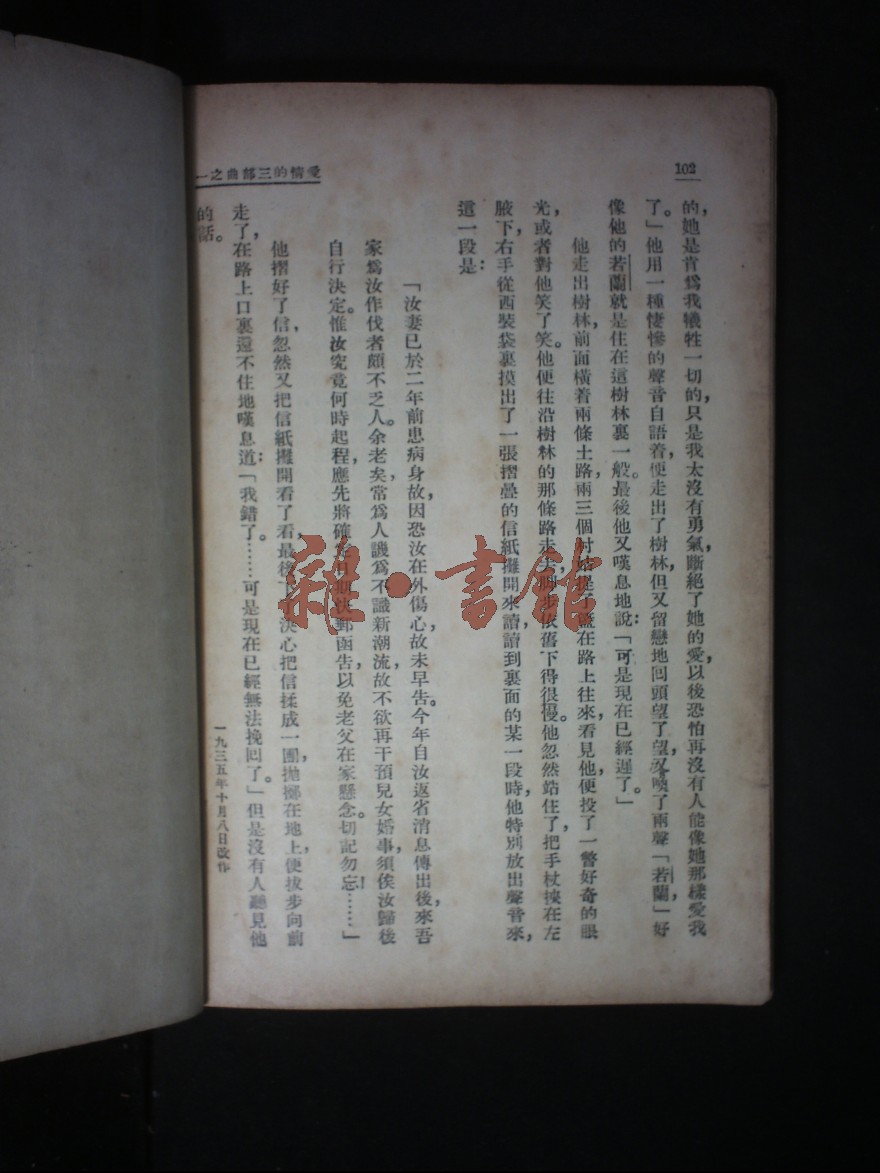 102
愛情的三部曲之一
的，她是肯爲我犧牲一切的，只是我太沒有勇氣，斷絕了她的愛，以後恐怕再沒有人能像她那樣愛我
了。」他用一種悽慘的聲音自語着，便走出了樹林，但又留戀地回頭望了望，又喚了兩聲「若蘭」，好
像他的若蘭就是住在這樹林裏一般。最後他又嘆息地說：「可是現在已經遲了。」
他走出樹林，前面橫着兩條土路，兩三個村姑提了籃在路上往來，看見他，便投了一瞥好奇的眼
光，或者對他笑了笑。他便往沿樹林的那條路走去，脚步依舊下得很慢。他忽然站住了，把手杖挾在左
腋下，右手從西裝袋裏摸出了一張摺疊的信紙攤開來讀，讀到裏面的某一段時，他特別放出聲音來，
這一段是：
「汝妻已於二年前患病身故，因恐汝在外傷心，故未早告。今年自汝返省消息傳出後，來吾
家爲汝作伐者頗不乏人。余老矣，常爲人譏爲不識新潮流，故不欲再干預兒女婚事，須俟汝歸後
自行決定。惟汝究竟何時起程，應先將確定日期快郵函告，以免老父在家懸念。切記勿忘！……」
他摺好了信，忽然又把信紙攤開看了看，最後下了決心把信揉成一團，拋擲在地上，便拔步向前
走了，在路上口裏還不住地嘆息道：「我錯了。……可是現在已經無法挽回了。」但是沒有人聽見他
的話。
一九三五年十月八日改作
雜·書館